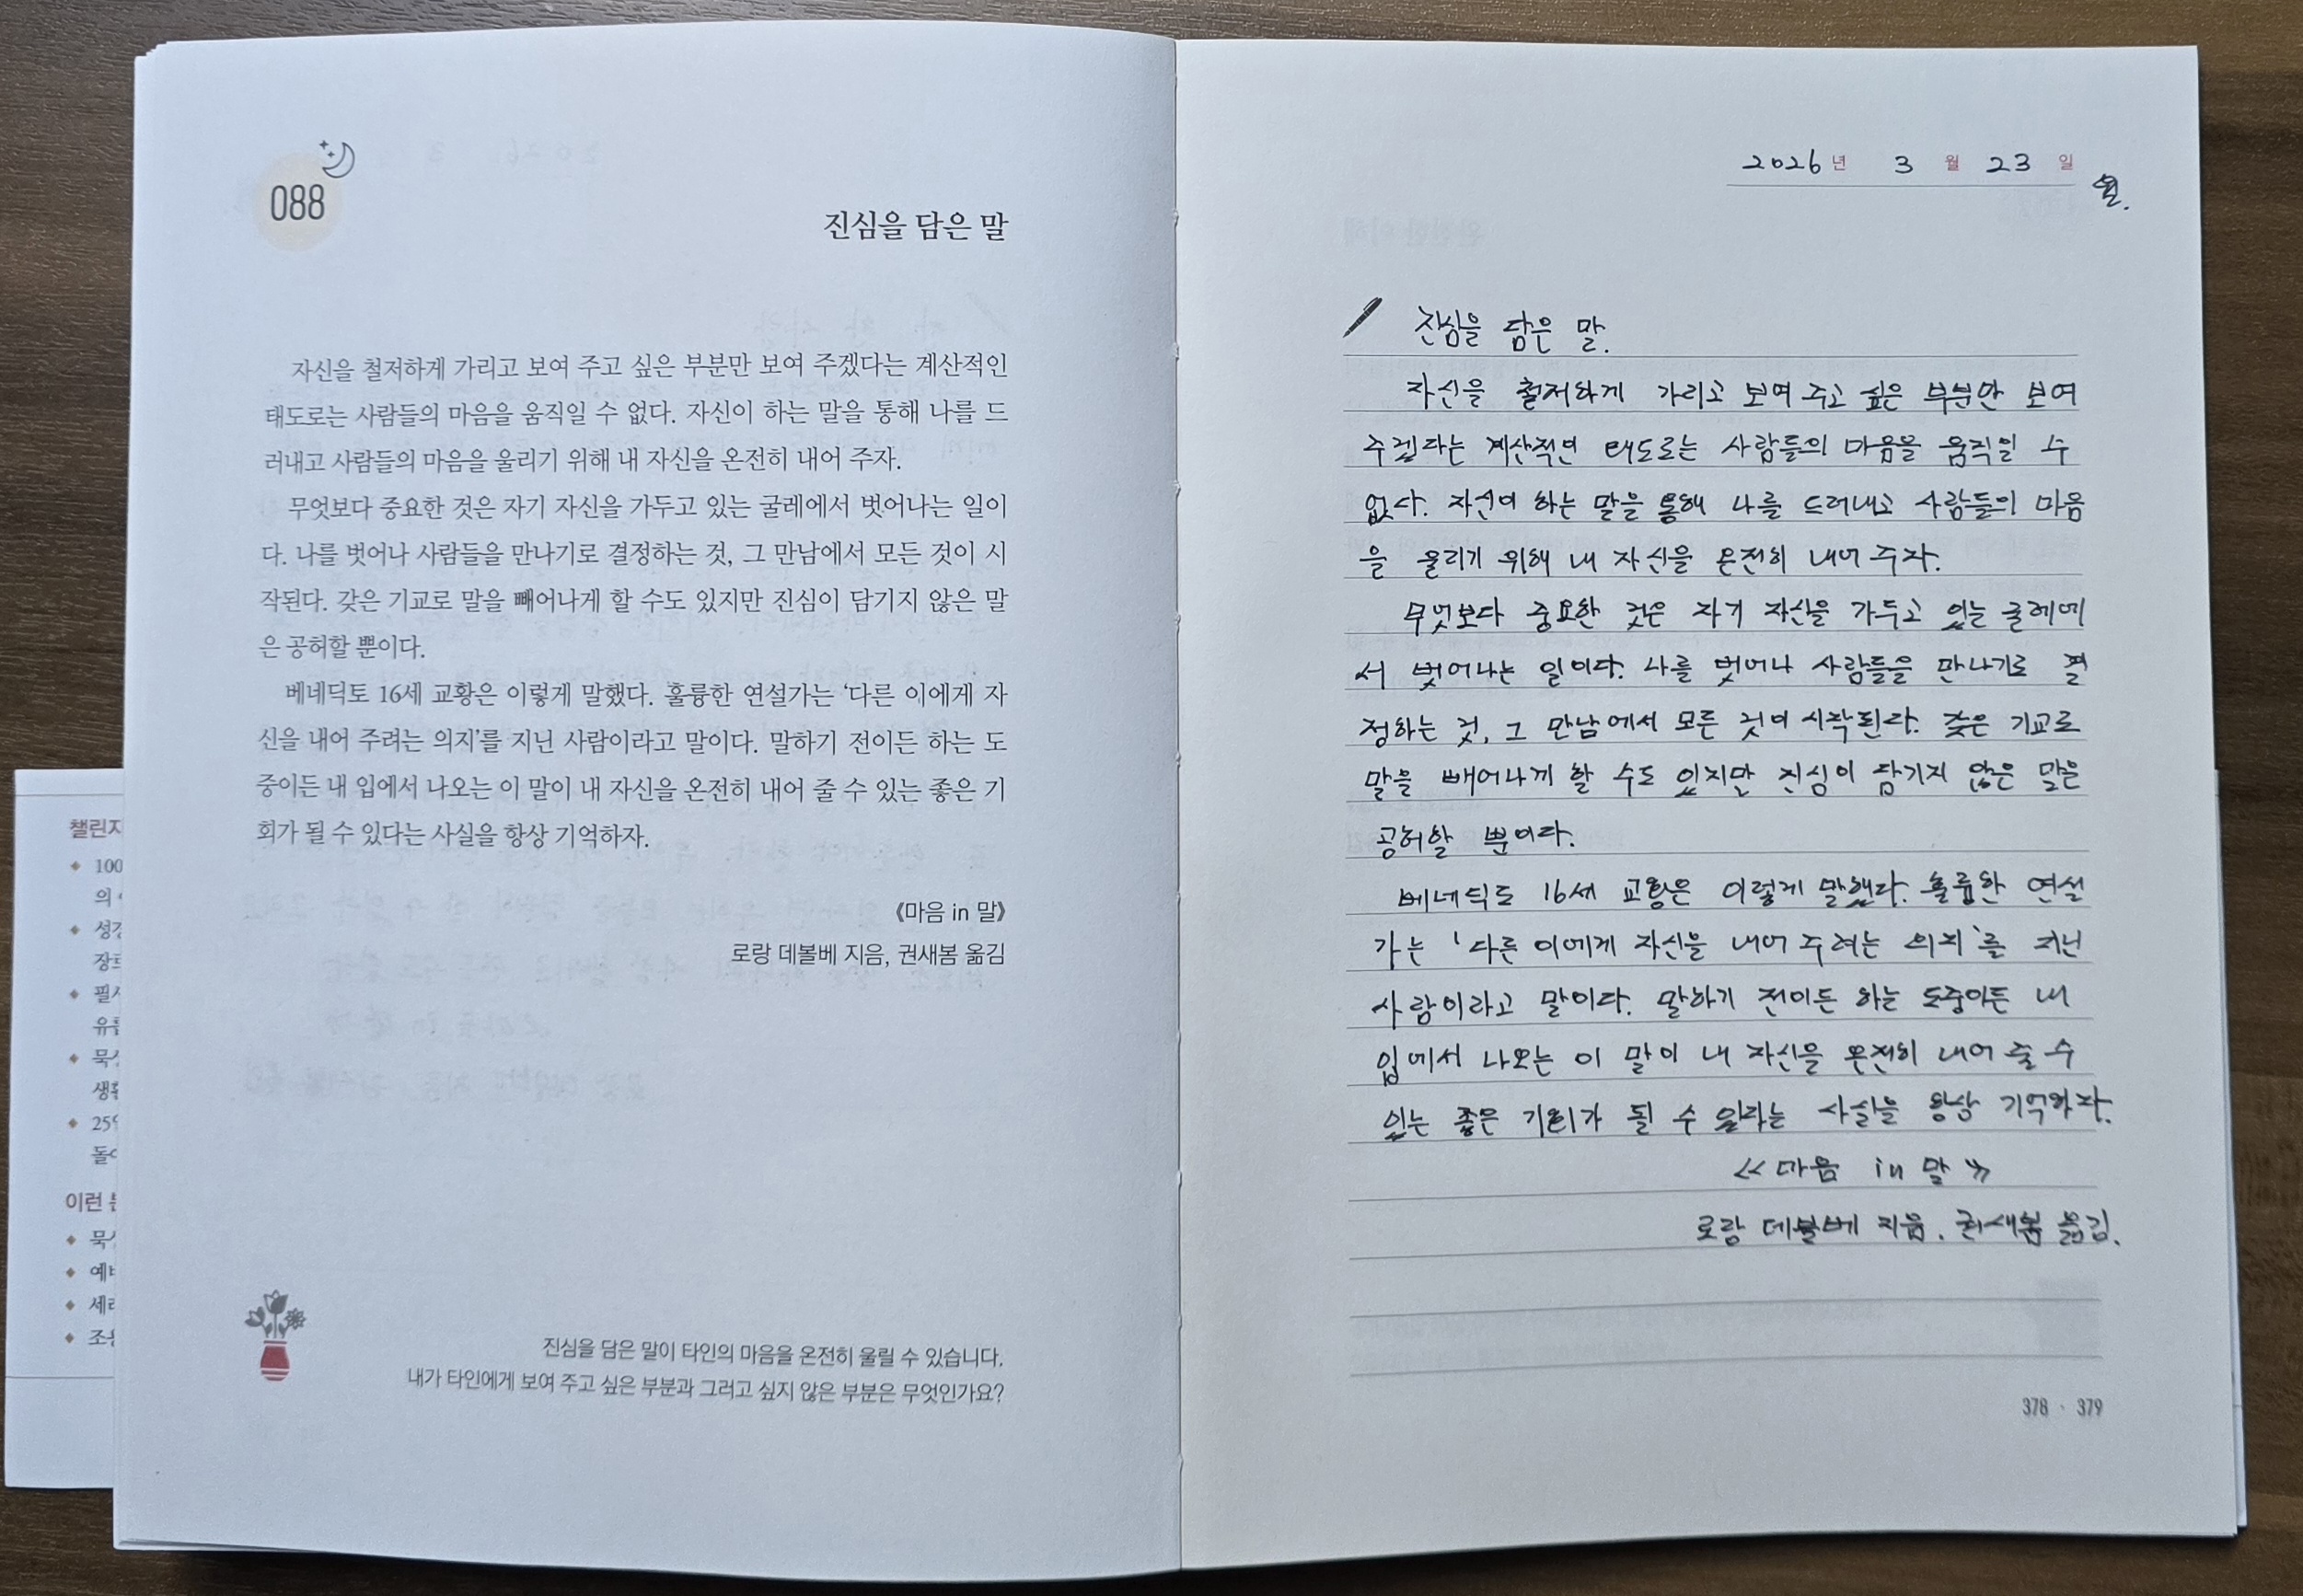 088
진심을 담은 말
자신을 철저하게 가리고 보여 주고 싶은 부분만 보여 주겠다는 계산적인
태도로는 사람들의 마음을 움직일 수 없다. 자신이 하는 말을 통해 나를 드
러내고 사람들의 마음을 울리기 위해 내 자신을 온전히 내어 주자.
무엇보다 중요한 것은 자기 자신을 가두고 있는 굴레에서 벗어나는 일이
다. 나를 벗어나 사람들을 만나기로 결정하는 것, 그 만남에서 모든 것이 시
작된다. 갖은 기교로 말을 빼어나게 할 수도 있지만 진심이 담기지 않은 말
은 공허할 뿐이다.
베네딕토 16세 교황은 이렇게 말했다. 훌륭한 연설가는 ‘다른 이에게 자
신을 내어 주려는 의지’를 지닌 사람이라고 말이다. 말하기 전이든 하는 도
중이든 내 입에서 나오는 이 말이 내 자신을 온전히 내어 줄 수 있는 좋은 기
회가 될 수 있다는 사실을 항상 기억하자.
《마음 in 말》
로랑 데볼베 지음, 권새봄 옮김
진심을 담은 말이 타인의 마음을 온전히 울릴 수 있습니다.
내가 타인에게 보여 주고 싶은 부분과 그러고 싶지 않은 부분은 무엇인가요?
챌린지
100
의
성경
장
필사
유
묵상
생활
25
돌아
이런
묵상
예
세
조용
2026년 3월 23일
월.
진심을 담은 말.
자신을 철저하게 가리고 보여 주고 싶은 부분만 보여
주겠다는 계산적인 태도로는 사람들의 마음을 움직일 수
없다. 자신이 하는 말을 통해 나를 드러내고 사람들의 마음
을 울리기 위해 내 자신을 온전히 내어 주자.
무엇보다 중요한 것은 자기 자신을 가두고 있는 굴레에
서 벗어나는 일이다. 나를 벗어나 사람들을 만나기로 결
정하는 것, 그 만남에서 모든 것이 시작된다. 갖은 기교로
말을 빼어나게 할 수도 있지만 진심이 담기지 않은 말은
공허할 뿐이다.
베네딕토 16세 교황은 이렇게 말했다. 훌륭한 연설
가는 '다른 이에게 자신을 내어 주려는 의지'를 지닌
사람이라고 말이다. 말하기 전이든 하는 도중이든 내
입에서 나오는 이 말이 내 자신을 온전히 내어 줄 수
있는 좋은 기회가 될 수 있다는 사실을 항상 기억하자.
≪마음 in 말≫
로랑 데볼베 지음. 권새봄 옮김.
378 · 379